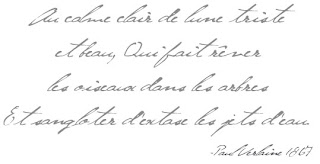 Au calme clair de lune triste
et beau, Qui fait rêver
les oiseaux dans les arbres
Et sangloter d'extase les jets d'eau.
-Paul Verlaine 1867